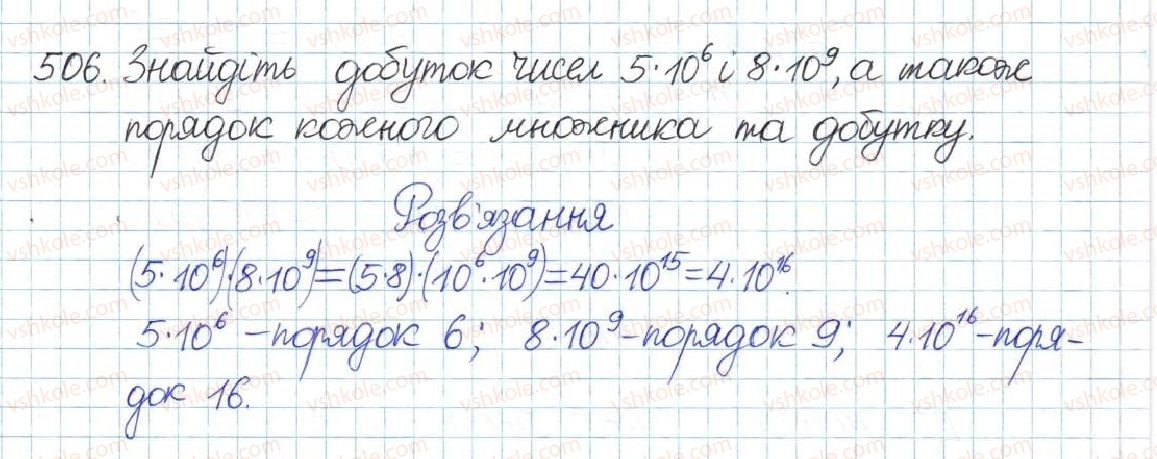 506. Знайдіть добуток чисел 5·10⁶ і 8·10⁹, а також
порядок кожного множника та добутку.
Розв'язання
(5·10⁶)·(8·10⁹)=(5·8)·(10⁶·10⁹)=40·10¹⁵=4·10¹⁶.
5·10⁶ –порядок 6; 8·10⁹–порядок 9; 4·10¹⁶–поря–
док 16.